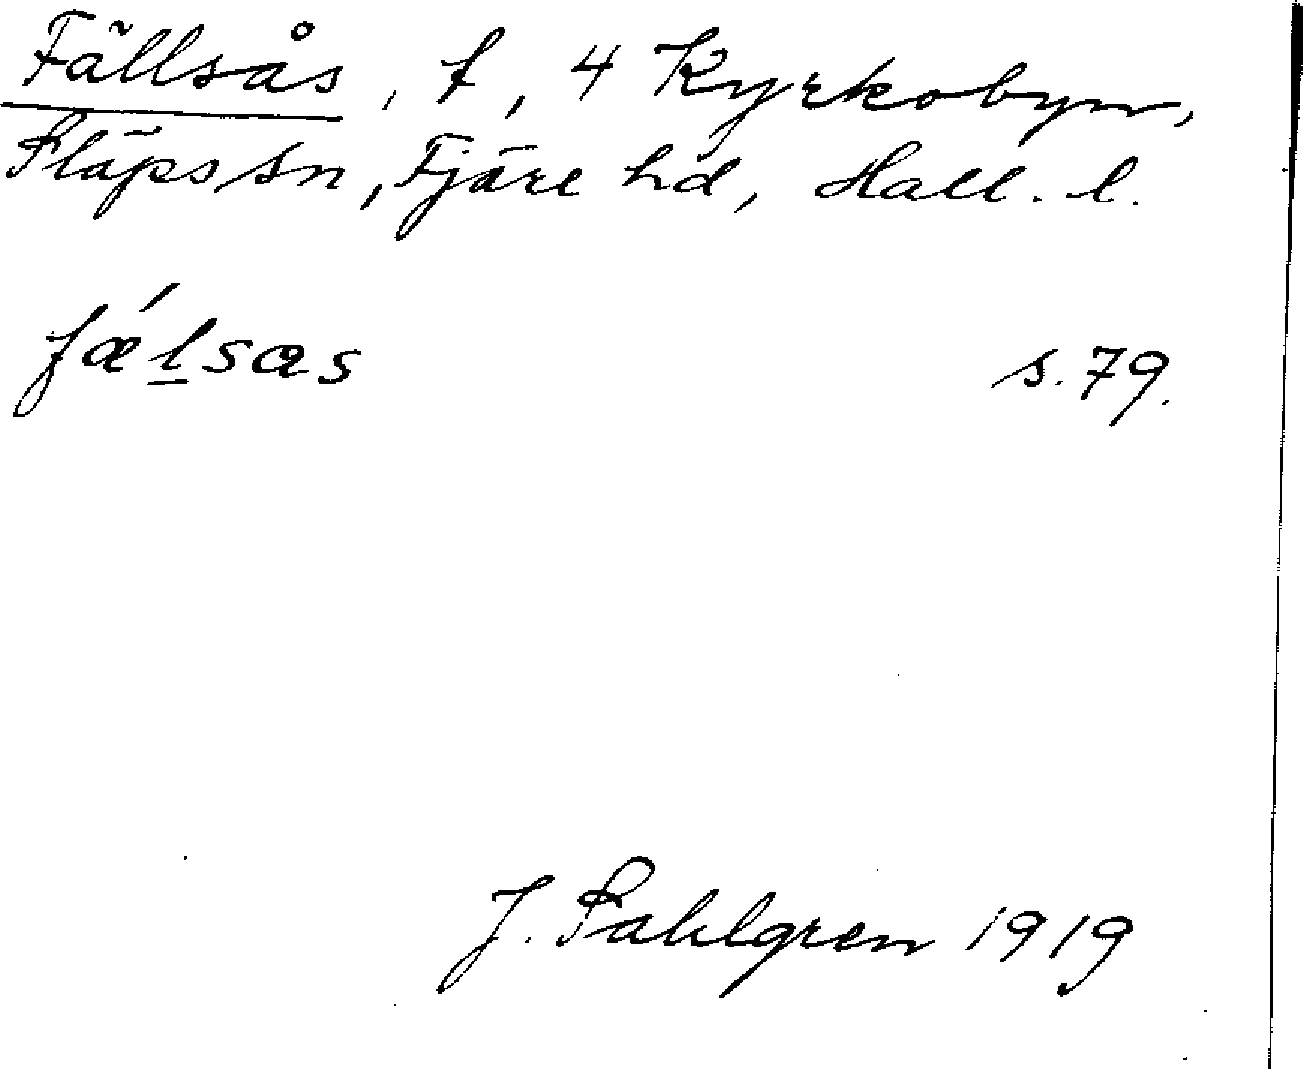 Fällsås, t, 4 Kyrkobyn,
Släps sn, Fjäre hd, Hall. l.
fǽl̲sas s. 79.
J. Sahlgren 1919